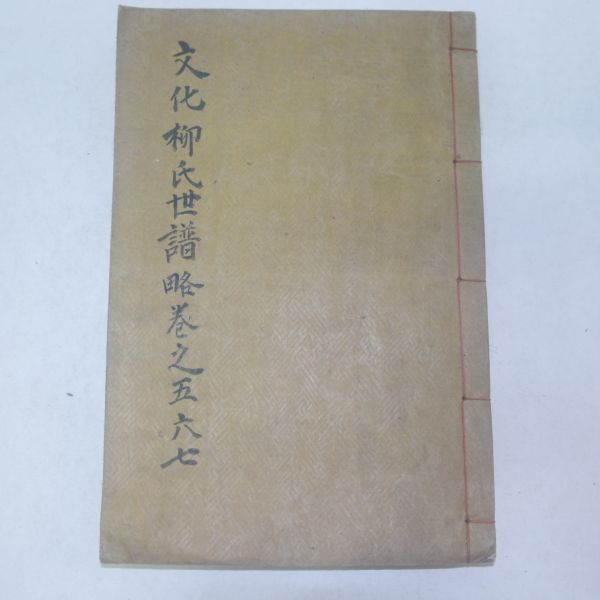 文化柳氏世譜略卷之五六七